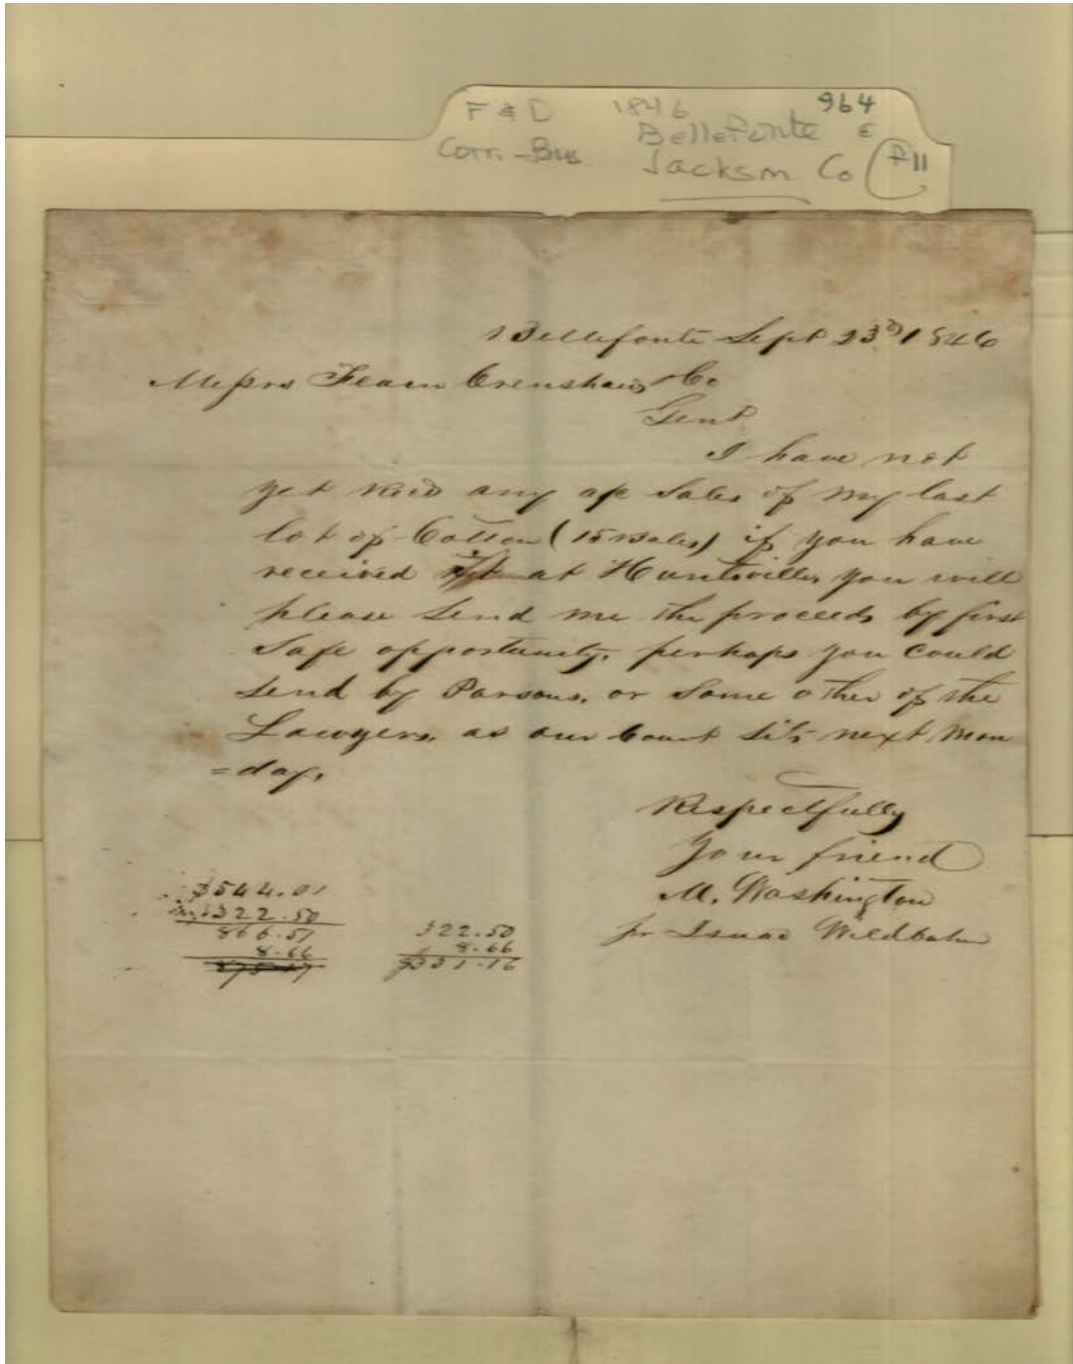 F & D 1846 964
Bellefonte E
Corr.-Bus Jackson Co f11
Bellefonte Sept 23d 1846
Messrs Fearn Crenshaw & Co
Gent
I have not
yet recd any a/c Sales of my last
lot of Cotton (15 Bales) if you have
received it at Huntsville, you will
please Send me the proceeds by first
Safe opportunity, perhaps you Could
Send by Parsons, or Some other of the
Lawyers, as our Court Sits next Mon
=day,
Respectfully
Your friend
M. Washington
pr Isaac
$544.01
322.50
866.51
8.66
322.50
8.66
$331.16